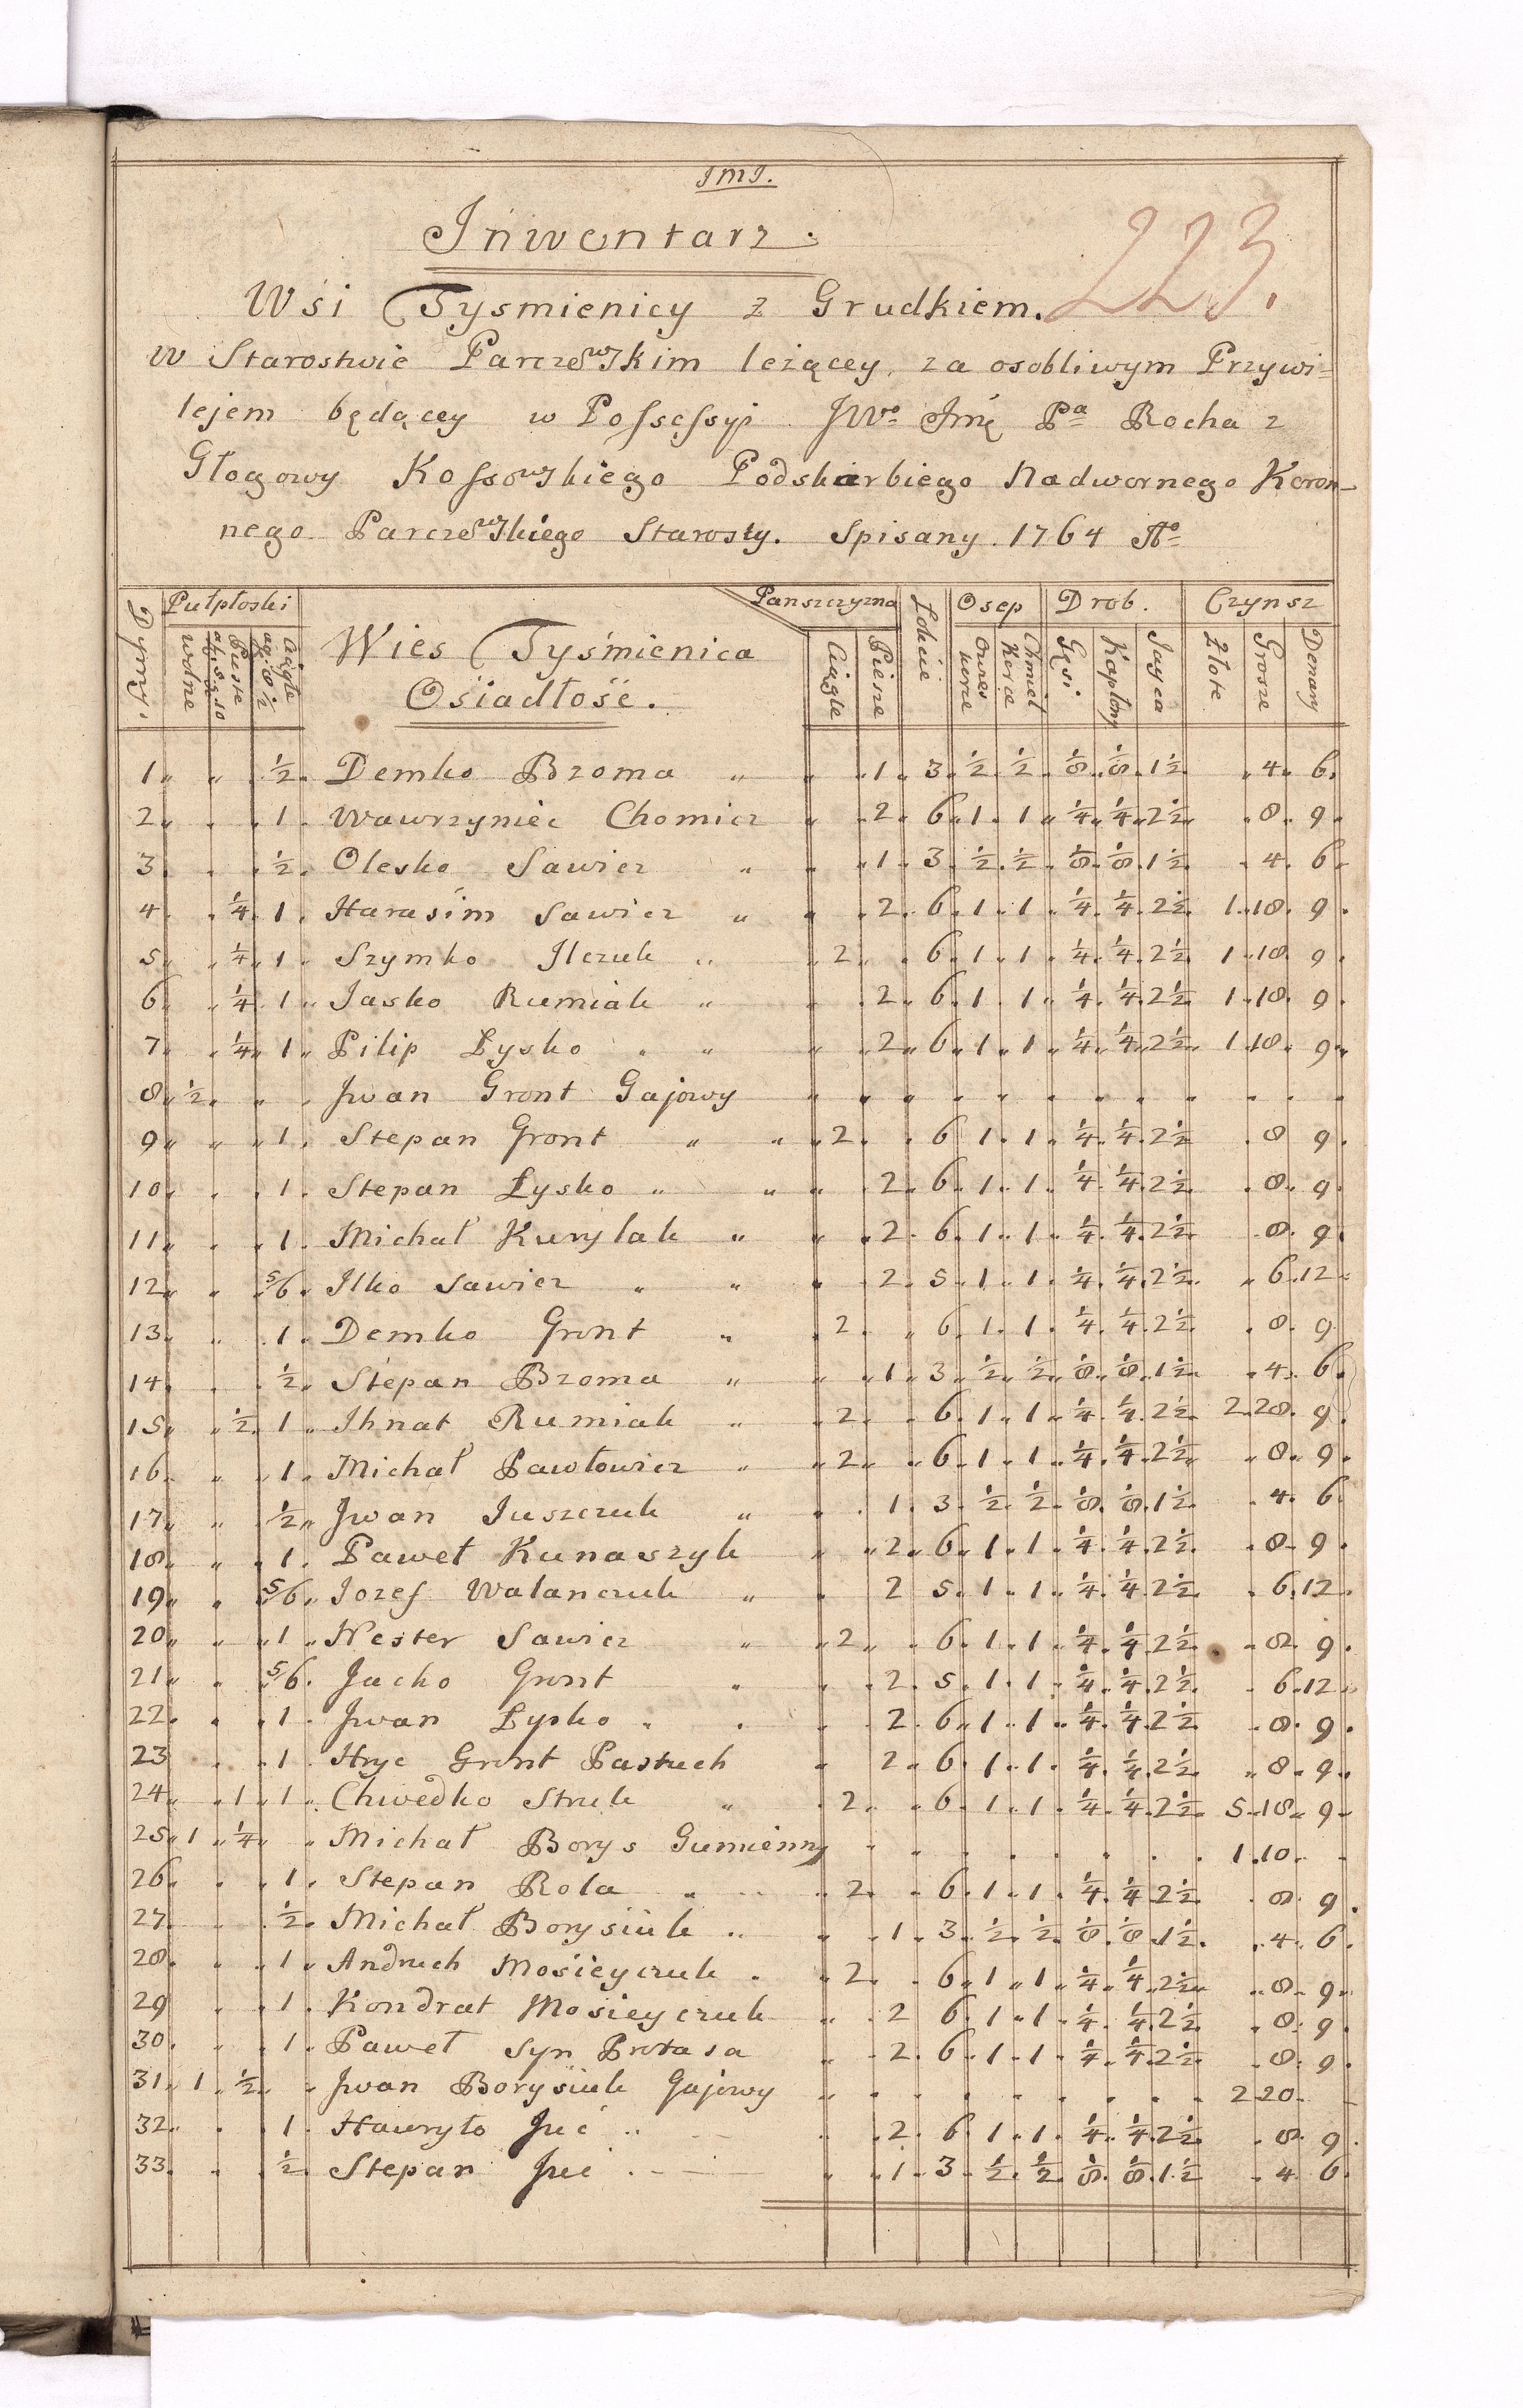 JMJ.
Inwentarz.
223.
Wśi Tysmienicy z Grudkiem.
w Starostwie Parczewskim leżącey, za osobliwym Przywi=
lejem będącey w Possessyi JWo Jmę Pa Rocha z
Głogowy Kossowskiego Podskarbiego Nadwornego Koron-
nego Parczewskiego Starosty. Spisany. 1764 Ao
Dymy. Pułpłoski Wies Tyśmienica Panszczyzna Łokcie Osep Drob. Czynsz
wolne Puste Ciągłe Osiadłość. Ciągłe Piesze Owies korce Chmiel Korce Gęsi Kapłony Jayca Złote Grosze Denary
1 ½ Demko Broma 1 3 ½ ½ ⅛ ⅛ 1½ 4 6
2 1 Wawrzyniec Chomicz 2 6 1 1 ¼ ¼ 2½ 8 9
3 ½ Olesko Sawicz 1 3 ½ ½ ⅛ ⅛ 1½ 4 6
4 ¼ 1 Harasim Sawicz 2 6 1 1 ¼ ¼ 2½ 1 18 9
5 ¼ 1 Szymko Ilczuk 2 6 1 1 ¼ ¼ 2½ 1 18 9
6 ¼ 1 Jasko Rumiak 2 6 1 1 ¼ ¼ 2½ 1 18 9
7 ¼ 1 Pilip Łysko 2 6 1 1 ¼ ¼ 2½ 1 18 9
8 ½ Jwan Gront Gajowy
9 1 Stepan Gront 2 6 1 1 ¼ ¼ 2½ 8 9
10 1 Stepan Łysko 2 6 1 1 ¼ ¼ 2½ 8 9
11 1 Michał Kurylak 2 6 1 1 ¼ ¼ 2½ 8 9
12 5/6 Ilko Sawicz 2 5 1 1 ¼ ¼ 2½ 6 12
13 1 Demko Gront 2 6 1 1 ¼ ¼ 2½ 8 9
14 ½ Stepan Broma 1 3 ½ ½ ⅛ ⅛ 1½ 4 6
15 ½ 1 Ihnat Rumiak 2 6 1 1 ¼ ¼ 2½ 2 28 9
16 1 Michał Pawłowicz 2 6 1 1 ¼ ¼ 2½ 8 9
17 ½ Jwan Juszczuk 1 3 ½ ½ ⅛ ⅛ 1½ 4 6
18 1 Paweł Kunaszyk 2 6 1 1 ¼ ¼ 2½ 8 9
19 5/6 Jozef Walanczuk 2 5 1 1 ¼ ¼ 2½ 6 12
20 1 Nester Sawicz 2 6 1 1 ¼ ¼ 2½ 8 9
21 5/6 Jacko Gront 2 5 1 1 ¼ ¼ 2½ 6 12
22 1 Jwan Łysko 2 6 1 1 ¼ ¼ 2½ 8 9
23 1 Hryc Gront Pastuch 2 6 1 1 ¼ ¼ 2½ 8 9
24 1 1 Chwedko Struk 2 6 1 1 ¼ ¼ 2½ 5 18 9
25 1 ¼ Michał Borys Gumienny 1 10
26 1 Stepan Rola 2 6 1 1 ¼ ¼ 2½ 8 9
27 ½ Michał Borysiuk 1 3 ½ ½ ⅛ ⅛ 1½ 4 6
28 1 Andruch Mosieyczuk 2 6 1 1 ¼ ¼ 2½ 8 9
29 1 Kondrat Mosieyczuk 2 6 1 1 ¼ ¼ 2½ 8 9
30 1 Paweł syn Protasa 2 6 1 1 ¼ ¼ 2½ 8 9
31 1 ½ Jwan Borysiuk Gajowy 2 20
32 1 Hawryło Juć 2 6 1 1 ¼ ¼ 2½ 8 9
33 ½ Stepan Juć 1 3 ½ ½ ⅛ ⅛ 1½ 4 6